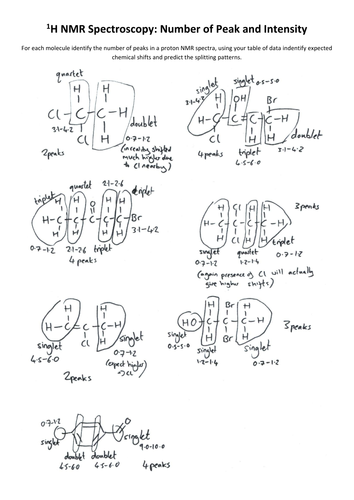 ¹H NMR Spectroscopy: Number of Peak and Intensity
For each molecule identify the number of peaks in a proton NMR spectra, using your table of data indentify expected
chemical shifts and predict the splitting patterns.
quartet
H H
Cl - C - C - H
Cl H
doublet
3.1-4.2
0.7-1.2
2 peaks
(incredibly shifted
much higher due
to Cl nearby)
singlet
singlet 0.5-5.0
3.1-4.3
H OH Br
H - C - C = C - C - H
H H H
doublet
4 peaks
triplet
3.1-4.2
4.5-6.0
triplet
quartet
2.1-2.6
triplet
H H O H H
H - C - C - C - C - C - Br
H H H H
3.1-4.2
0.7-1.2
2.1-2.6
triplet
4 peaks
3 peaks
H Cl H H
H - C - C - C - C - H
H Cl H H
triplet
singlet
quartet
0.7-1.2
0.7-1.2
1.2-1.4
(again presence of Cl will actually
give higher shifts)
H H
H - C = C - C - H
Cl H
singlet
singlet
4.5-6.0
0.7-1.2
(expect higher)
2 peaks
H Br H
HO - C - C - C - H
H Br H
3 peaks
singlet
0.5-5.0
singlet
singlet
1.2-1.4
0.7-1.2
0.7-1.2
O
singlet
singlet
9.0-10.0
doublet doublet
4.5-6.0 4.5-6.0
4 peaks